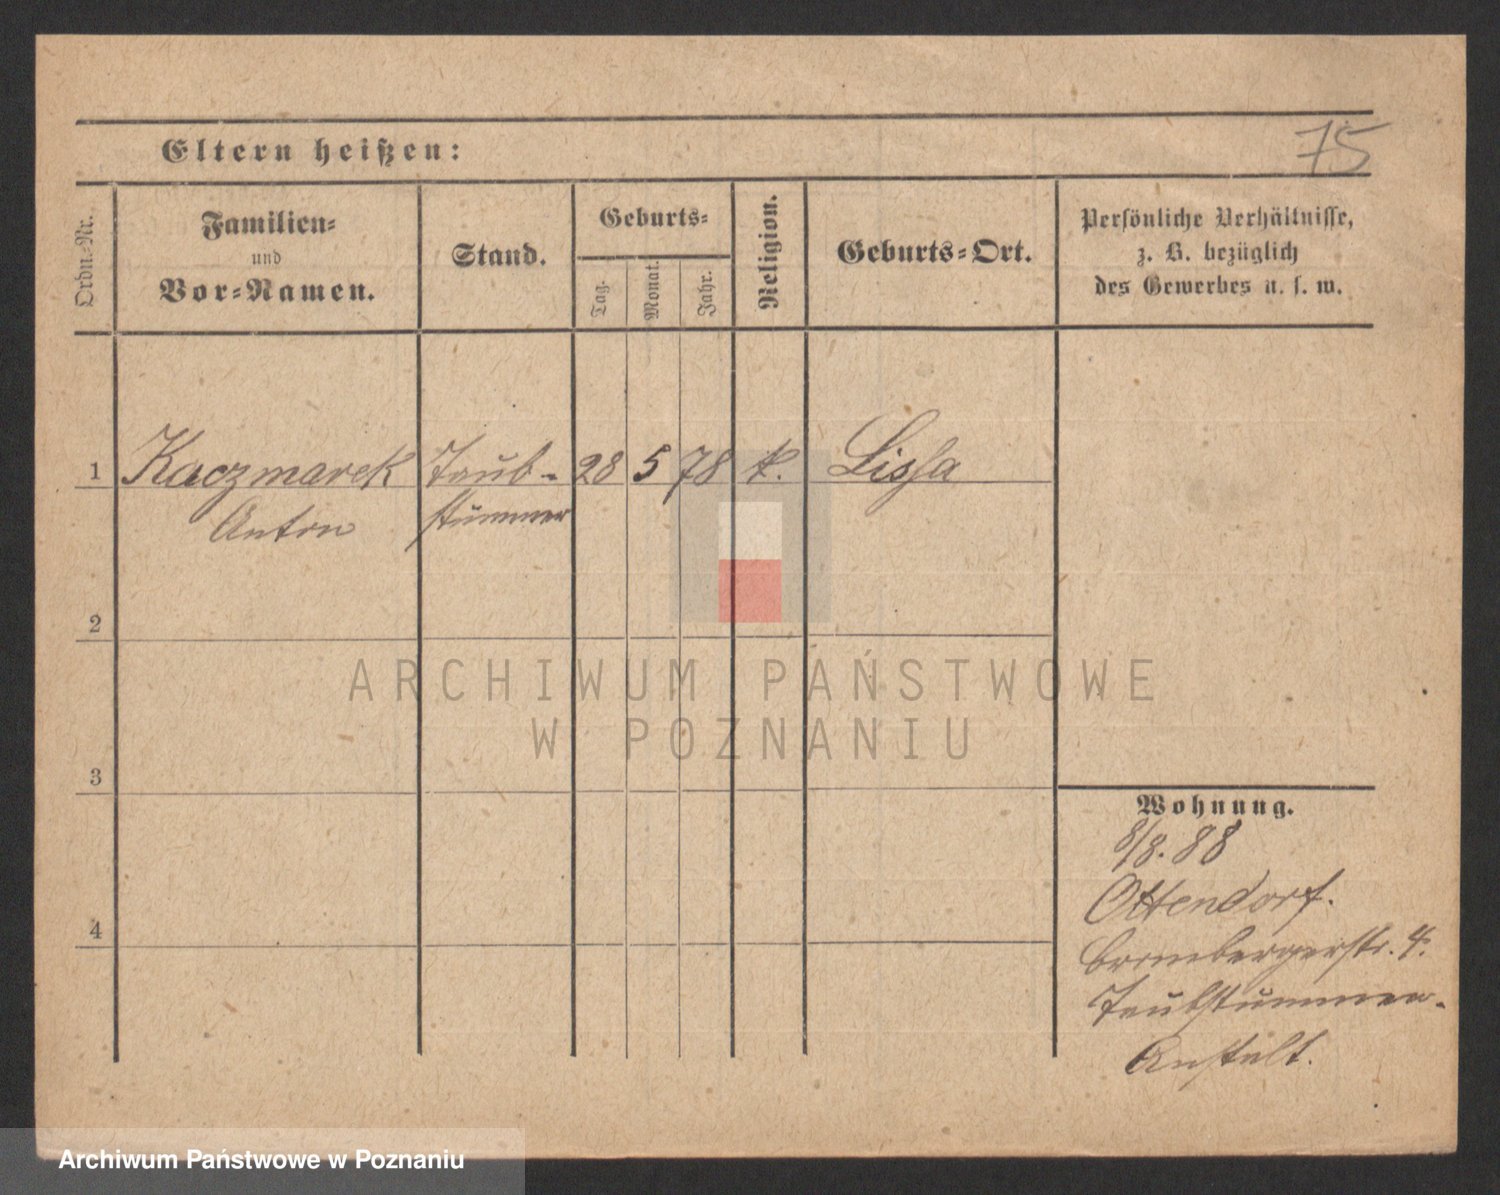 75
Eltern heißen:
Ordn.-Nr.
Familien-
und
Vor-Namen.
Stand.
Geburts-
Tag.
Monat.
Jahr.
Religion.
Geburts-Ort.
Persönliche Verhältnisse,
z. B. bezüglich
des Gewerbes u. s. w.
1 Kaczmarek Taub- 28 5 78 k. Lissa
Anton stummer
2
3
4
Wohnung.
8/8. 88
Ottendorf.
Brombergerstr. 4.
Taubstummen-
Anstalt.
ARCHIWUM PAŃSTWOWE
W POZNANIU
Archiwum Państwowe w Poznaniu